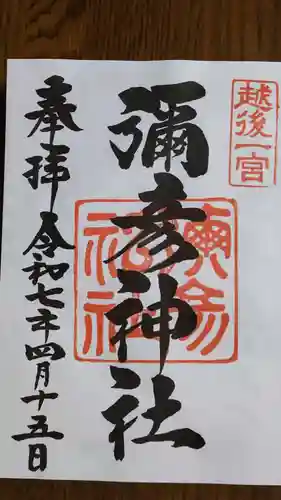 越後一宮
彌彦神社
奉拝
令和七年四月十五日